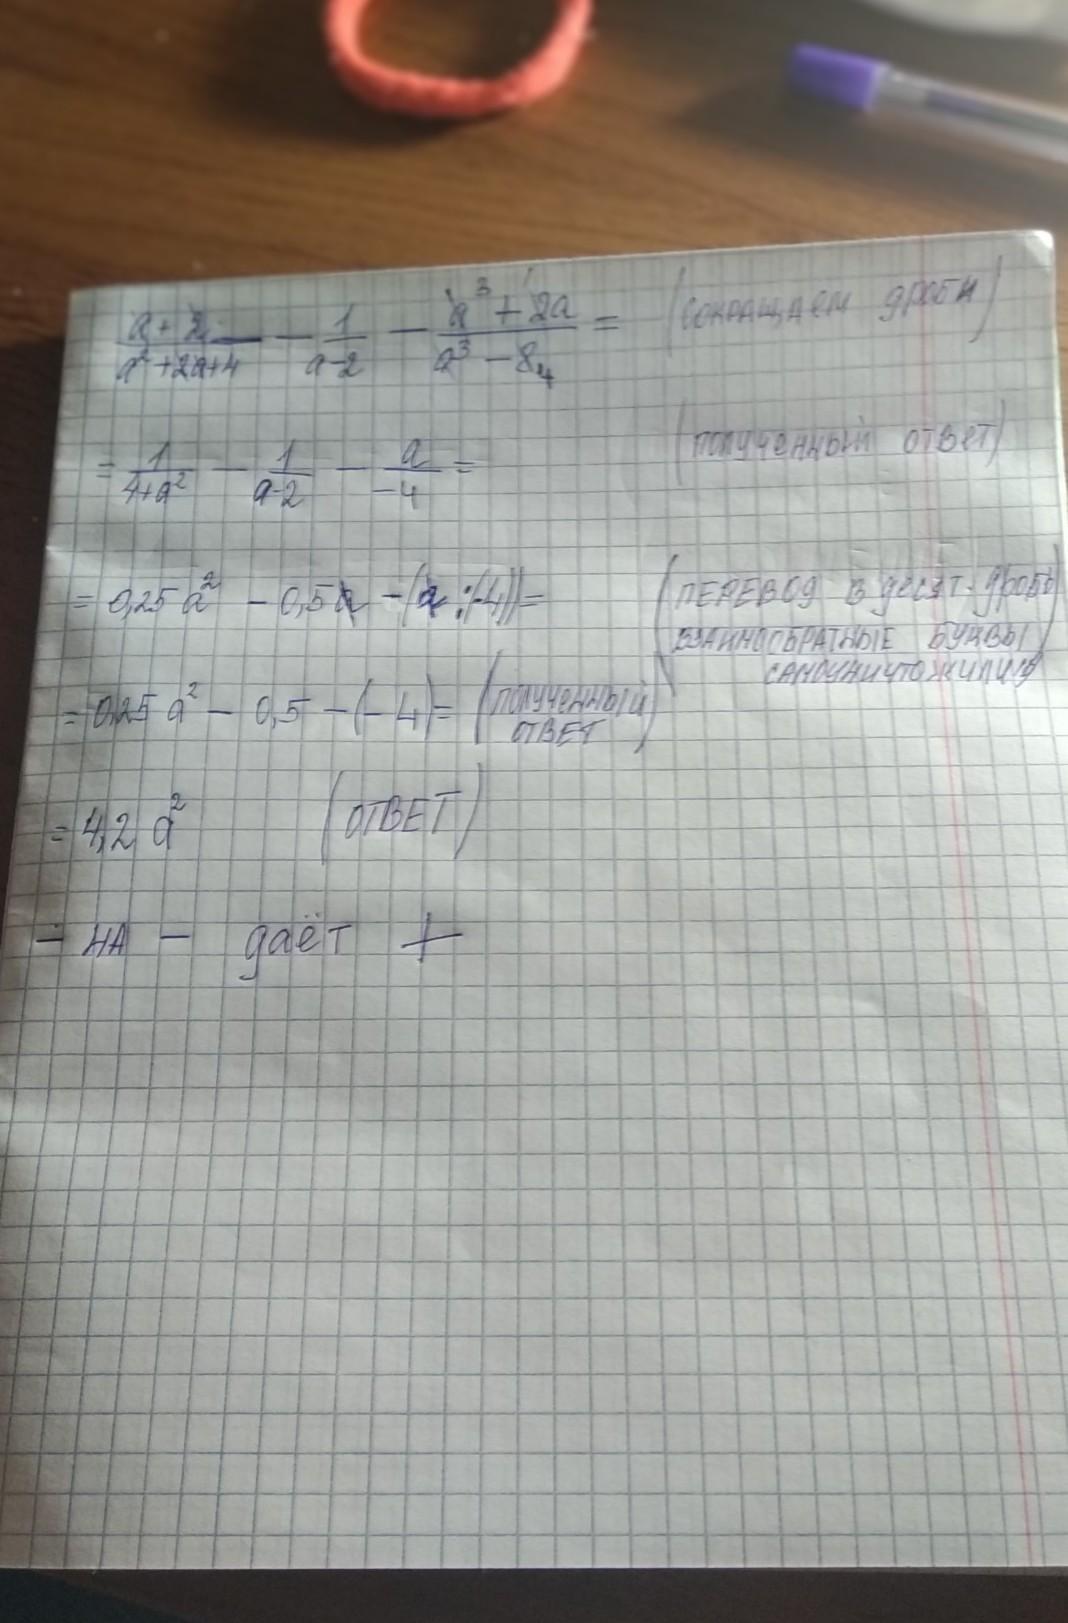 a + 2 / a² + 2a + 4 - 1 / a - 2 - a³ + 2a / a³ - 8₄ = (сокращаем дроби)
= 1 / 4 + a² - 1 / a - 2 - a / -4 = (полученный ответ)
= 0,25 a² - 0,5a - (a : (-4)) = (ПЕРЕВОД В десят. дробь
ВЗАИНООБРАТНЫЕ БУКВЫ
САМОУНИЧТОЖИЛИСЬ)
= 0,25 a² - 0,5 - (- 4) = (полученный
ОТВЕТ)
= 4,2 a² (ОТВЕТ)
- НА - даёт +